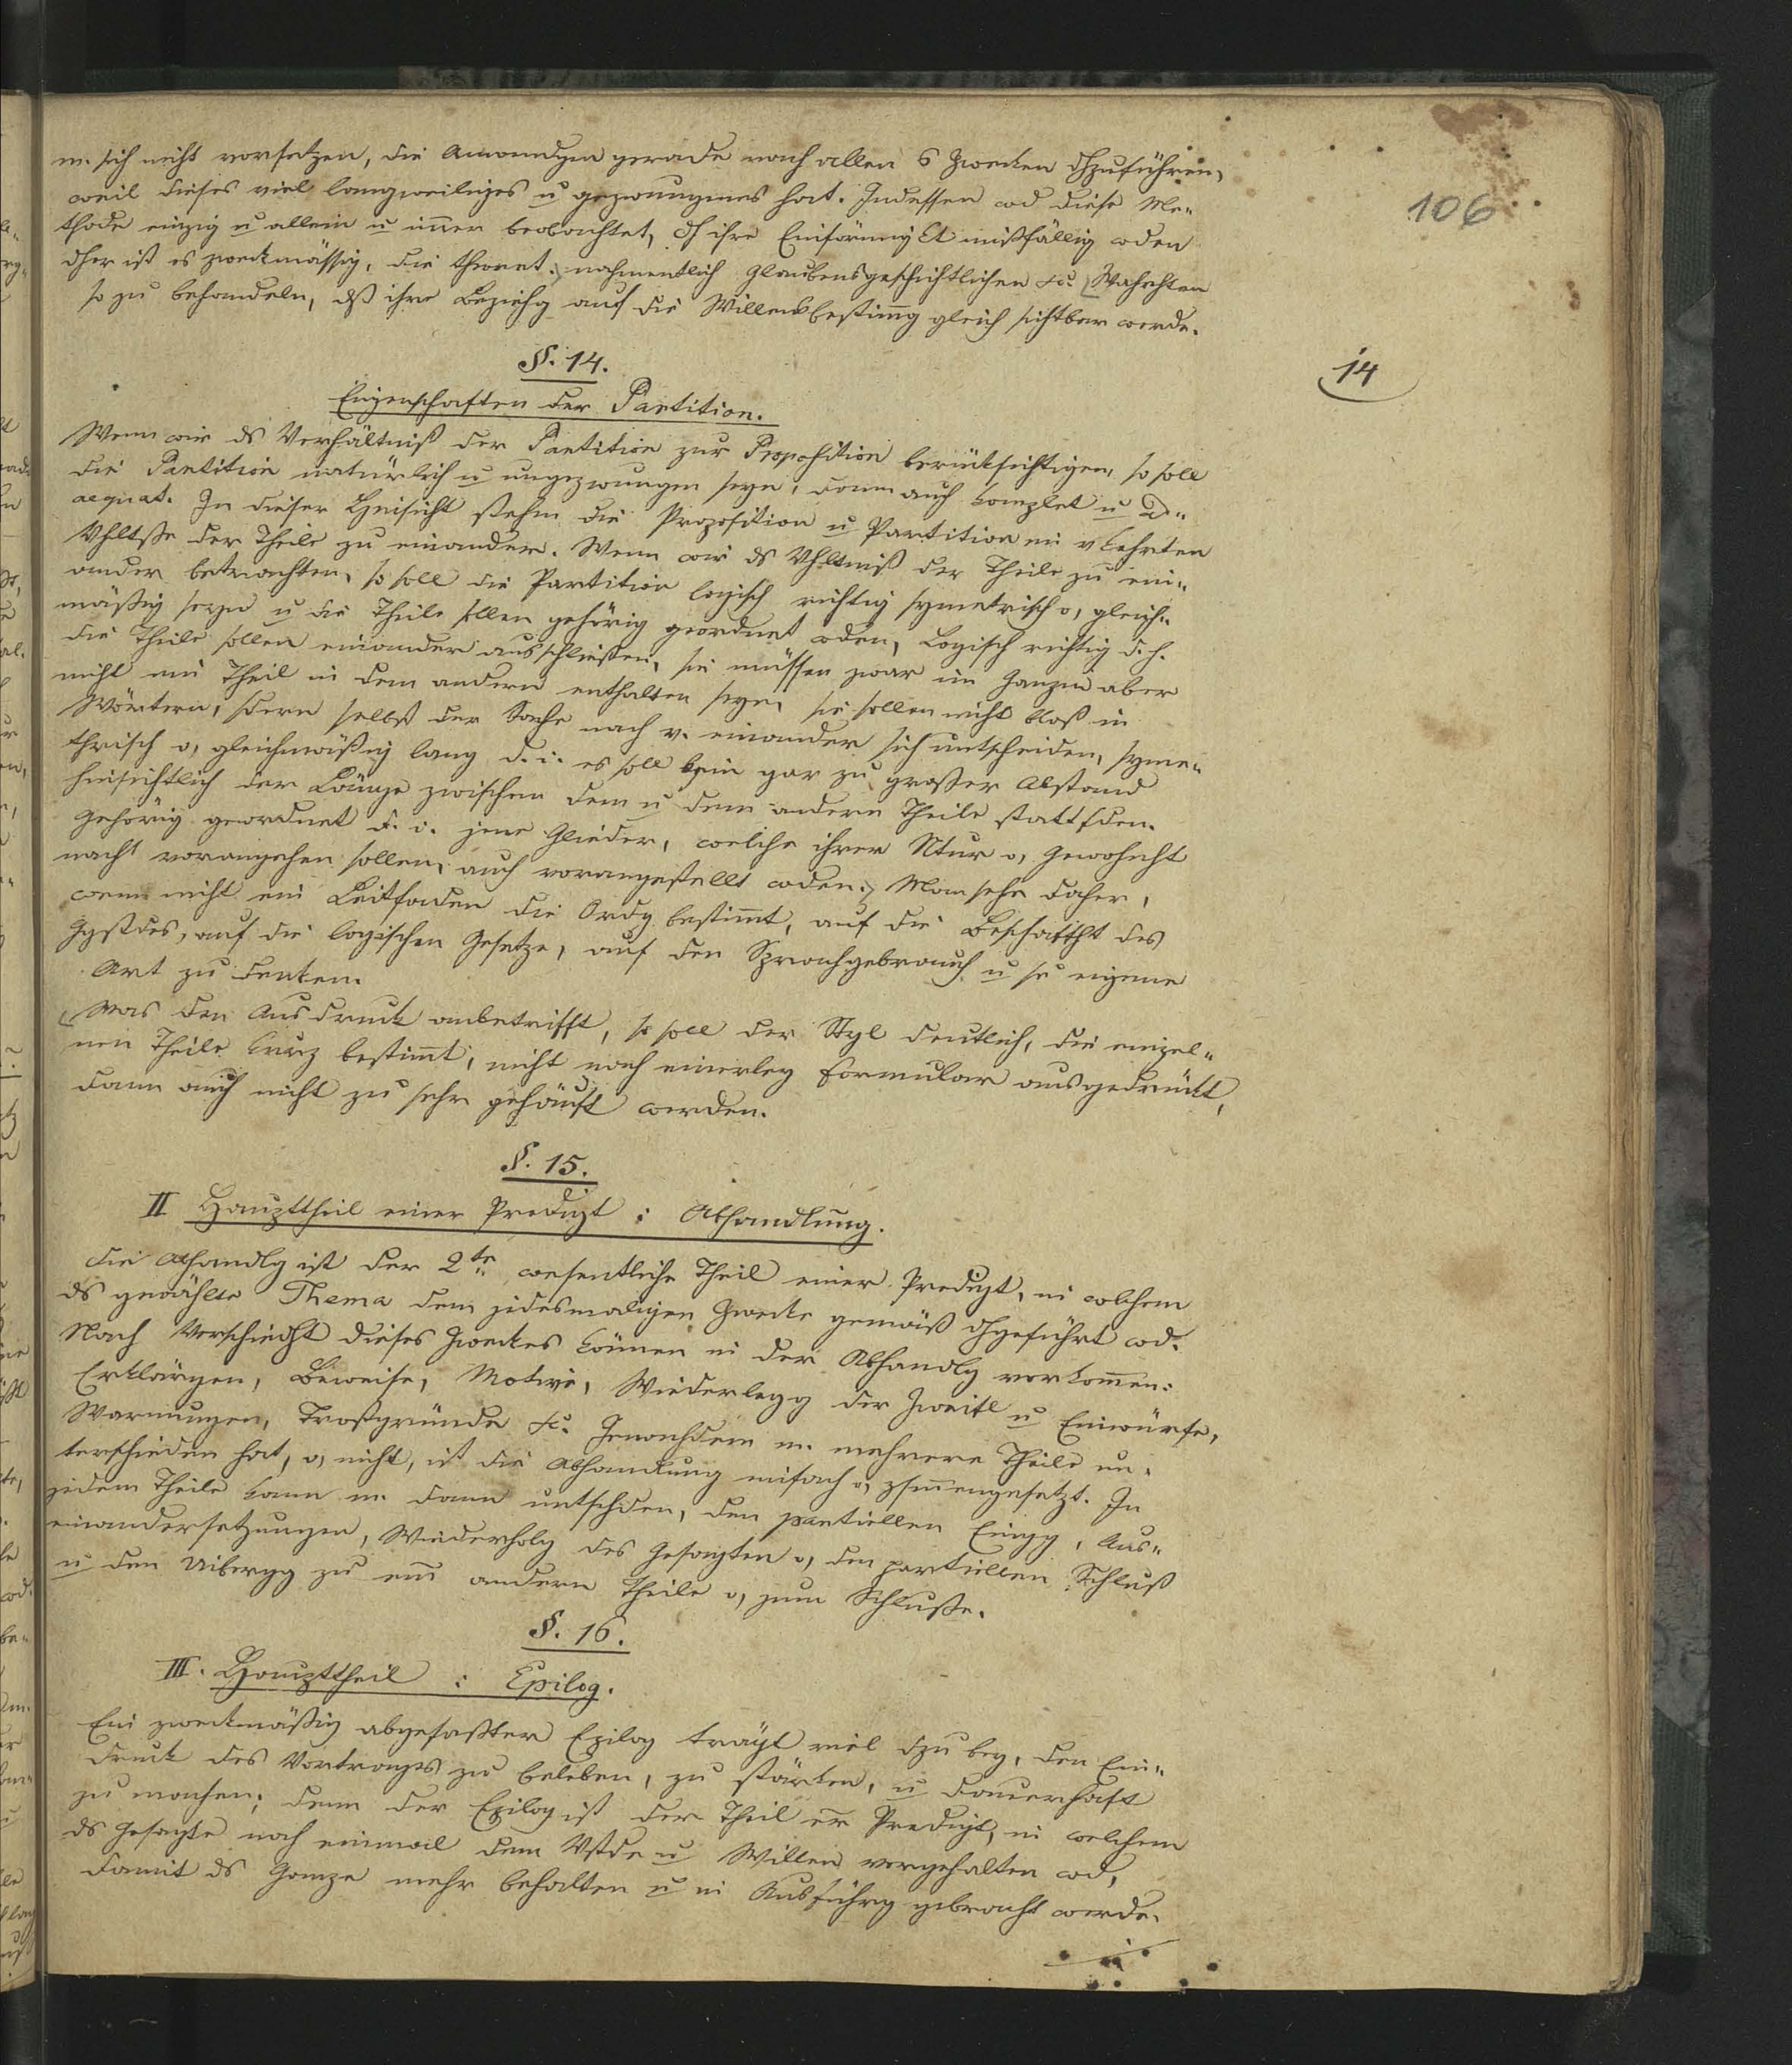 106
m. sich nicht vorsetzen, die Anwendgen gerade nach allen 6 Zwecken dhzuführen,
weil dieses viel langweiliges u gezwungenes hat. Indessen wd diese Me-
thode einzig u allein u im̄er beobachtet, dh ihre Einförmigkt mißfällig wden
dher ist es zweckmässig, die theoret. nahmentlich glaubensgeschichtlichen &c Wahrhten
so zu behandeln, dß ihre Beziehg auf die Willensbestim̄g gleich sichtbar werde.
§. 14.
14
Eigenschaften der Partition.
Wenn wir ds Verhältniß der Partition zur Proposition berücksichtigen, so soll
die Partition natürlich u ungezwungen seyn, dann auch komplet u ad-
aequat. In dieser Hinsicht stehen die Proposition u Partition im vkehrten
Vhltße der Theile zu einander. Wenn wir ds Vhltniß der Theile zu ein-
ander betrachten, so soll die Partition logisch richtig symetrisch o, gleich-
mäßig seyn u die Theile sollen gehörig geordnet wden, Logisch richtig d. h.
die Theile sollen einander ausschließen, sie müssen zwar im Ganzen aber
nicht ein Theil in dem andern enthalten seyn, sie sollen nicht bloß in
Wörtern, sdern selbst der Sache nach v. einander sich untscheiden, syme-
thrisch o, gleichmäßig lang d. i. es soll kein gar zu großer Abstand
hinsichtlich der Länge zwischen dem u dem andern Theile stattfden.
Gehörig geordnet d. i. jene Glieder, welche ihrer Ntur o, Gewohnht
nach vorangehen sollen, auch vorangestellt wden. Man sehe daher,
wenn nicht ein Leitfaden die Ordg bestim̄t, auf die Beschaffht des
Ggstdes, auf die logischen Gesetze, auf den Sprachgebrauch u se eigene
Art zu denken.
Was den Ausdruck anbetrifft, so soll der Styl deutlich, die einzel-
nen Theile kurz bestim̄t, nicht nach einerley Formular ausgedrückt,
dann auch nicht zu sehr gehäuft werden.
§. 15.
II Haupttheil einer Predigt : Abhandlung.
Die Abhandlg ist der 2te wesentliche Theil einer Predigt, in welchem
ds gewählte Thema dem jedesmaligen Zwecke gemäß dhgeführt wd.
Nach Verschiedht dieses Zweckes können in der Abhandlg vorkom̄en:
Erklärgen, Beweise, Motive, Wiederlegg der Zweifl u Einwürfe,
Warnungen, Trostgründe &c. Jenachdem m. mehrere Theile un-
terschieden hat, o, nicht, ist die Abhandlung einfach o, zsm̄engesetzt. In
jedem Theile kann m. dann untschden, den partiellen Eingg, Aus-
einandersetzungen, Wiederholg des Gesagten o, den partiellen Schluß
u den Uibergg zu em̄ andern Theile o, zum Schluße.
§. 16.
III. Haupttheil : Epilog.
Ein zweckmäßig abgefaßter Epilog trägt viel dzu bey, den Ein-
druck des Vortrages zu beleben, zu stärken, u dauerhaft
zu machen; denn der Epilog ist der Theil er Predigt, in welchem
ds Gesagte noch einmal dem Vstde u Willen vorgehalten wd,
damit ds Ganze mehr behalten u in Ausführg gebracht werde.